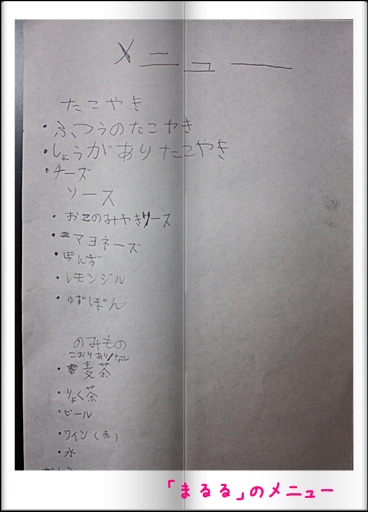 メニュー
たこやき
・ふつうのたこやき
・しょうがありたこやき
・チーズ
ソース
・おこのみやきソース
・マヨネーズ
・ぽんず
・レモンジル
・ゆずぽん
のみもの
こおりあり/なし
・麦茶
・りょく茶
・ビール
・ワイン(赤)
・水
「まるる」のメニュー